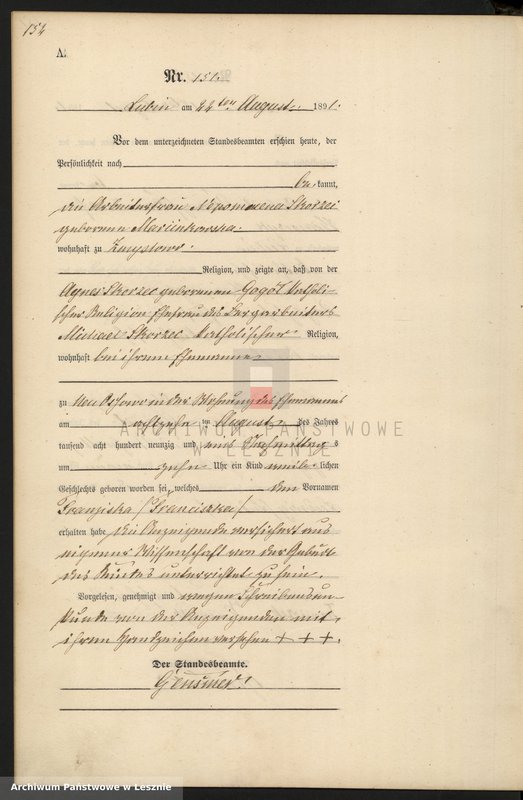 154
A.
Nr. 151.
Lubin am 22ten August 1891.
Vor dem unterzeichneten Standesbeamten erschien heute, der
Persönlichkeit nach
be kannt,
die Arbeiterfrau Nepomucena Skorzec
geborene Marcinkowska
wohnhaft zu
Religion, und zeigte an, daß von der
Agnes Skorzec geborenen Gogół katholi-
scher Religion Ehefrau des
Michael Skorzec katholischer Religion,
wohnhaft bei ihrem Ehemanne
zu Neu in der Wohnung des Ehemannes
am achtzehn ten August des Jahres
tausend acht hundert neunzig und eins Nachmittag s
um zehn Uhr ein Kind weib lichen
Geschlechts geboren worden sei, welches den Vornamen
Franziska /Franciszka/
erhalten habe die Anzeigende versichert aus
eigener Wissenschaft von der Geburt
des Kindes unterrichtet zu sein.
Vorgelesen, genehmigt und wegen Schreibensun-
kunde von der Anzeigenden mit
ihren Handzeichen versehen + + +.
Der Standesbeamte.
ARCHIWUM PAŃSTWOWE
W LESZNIE
Archiwum Państwowe w Lesznie